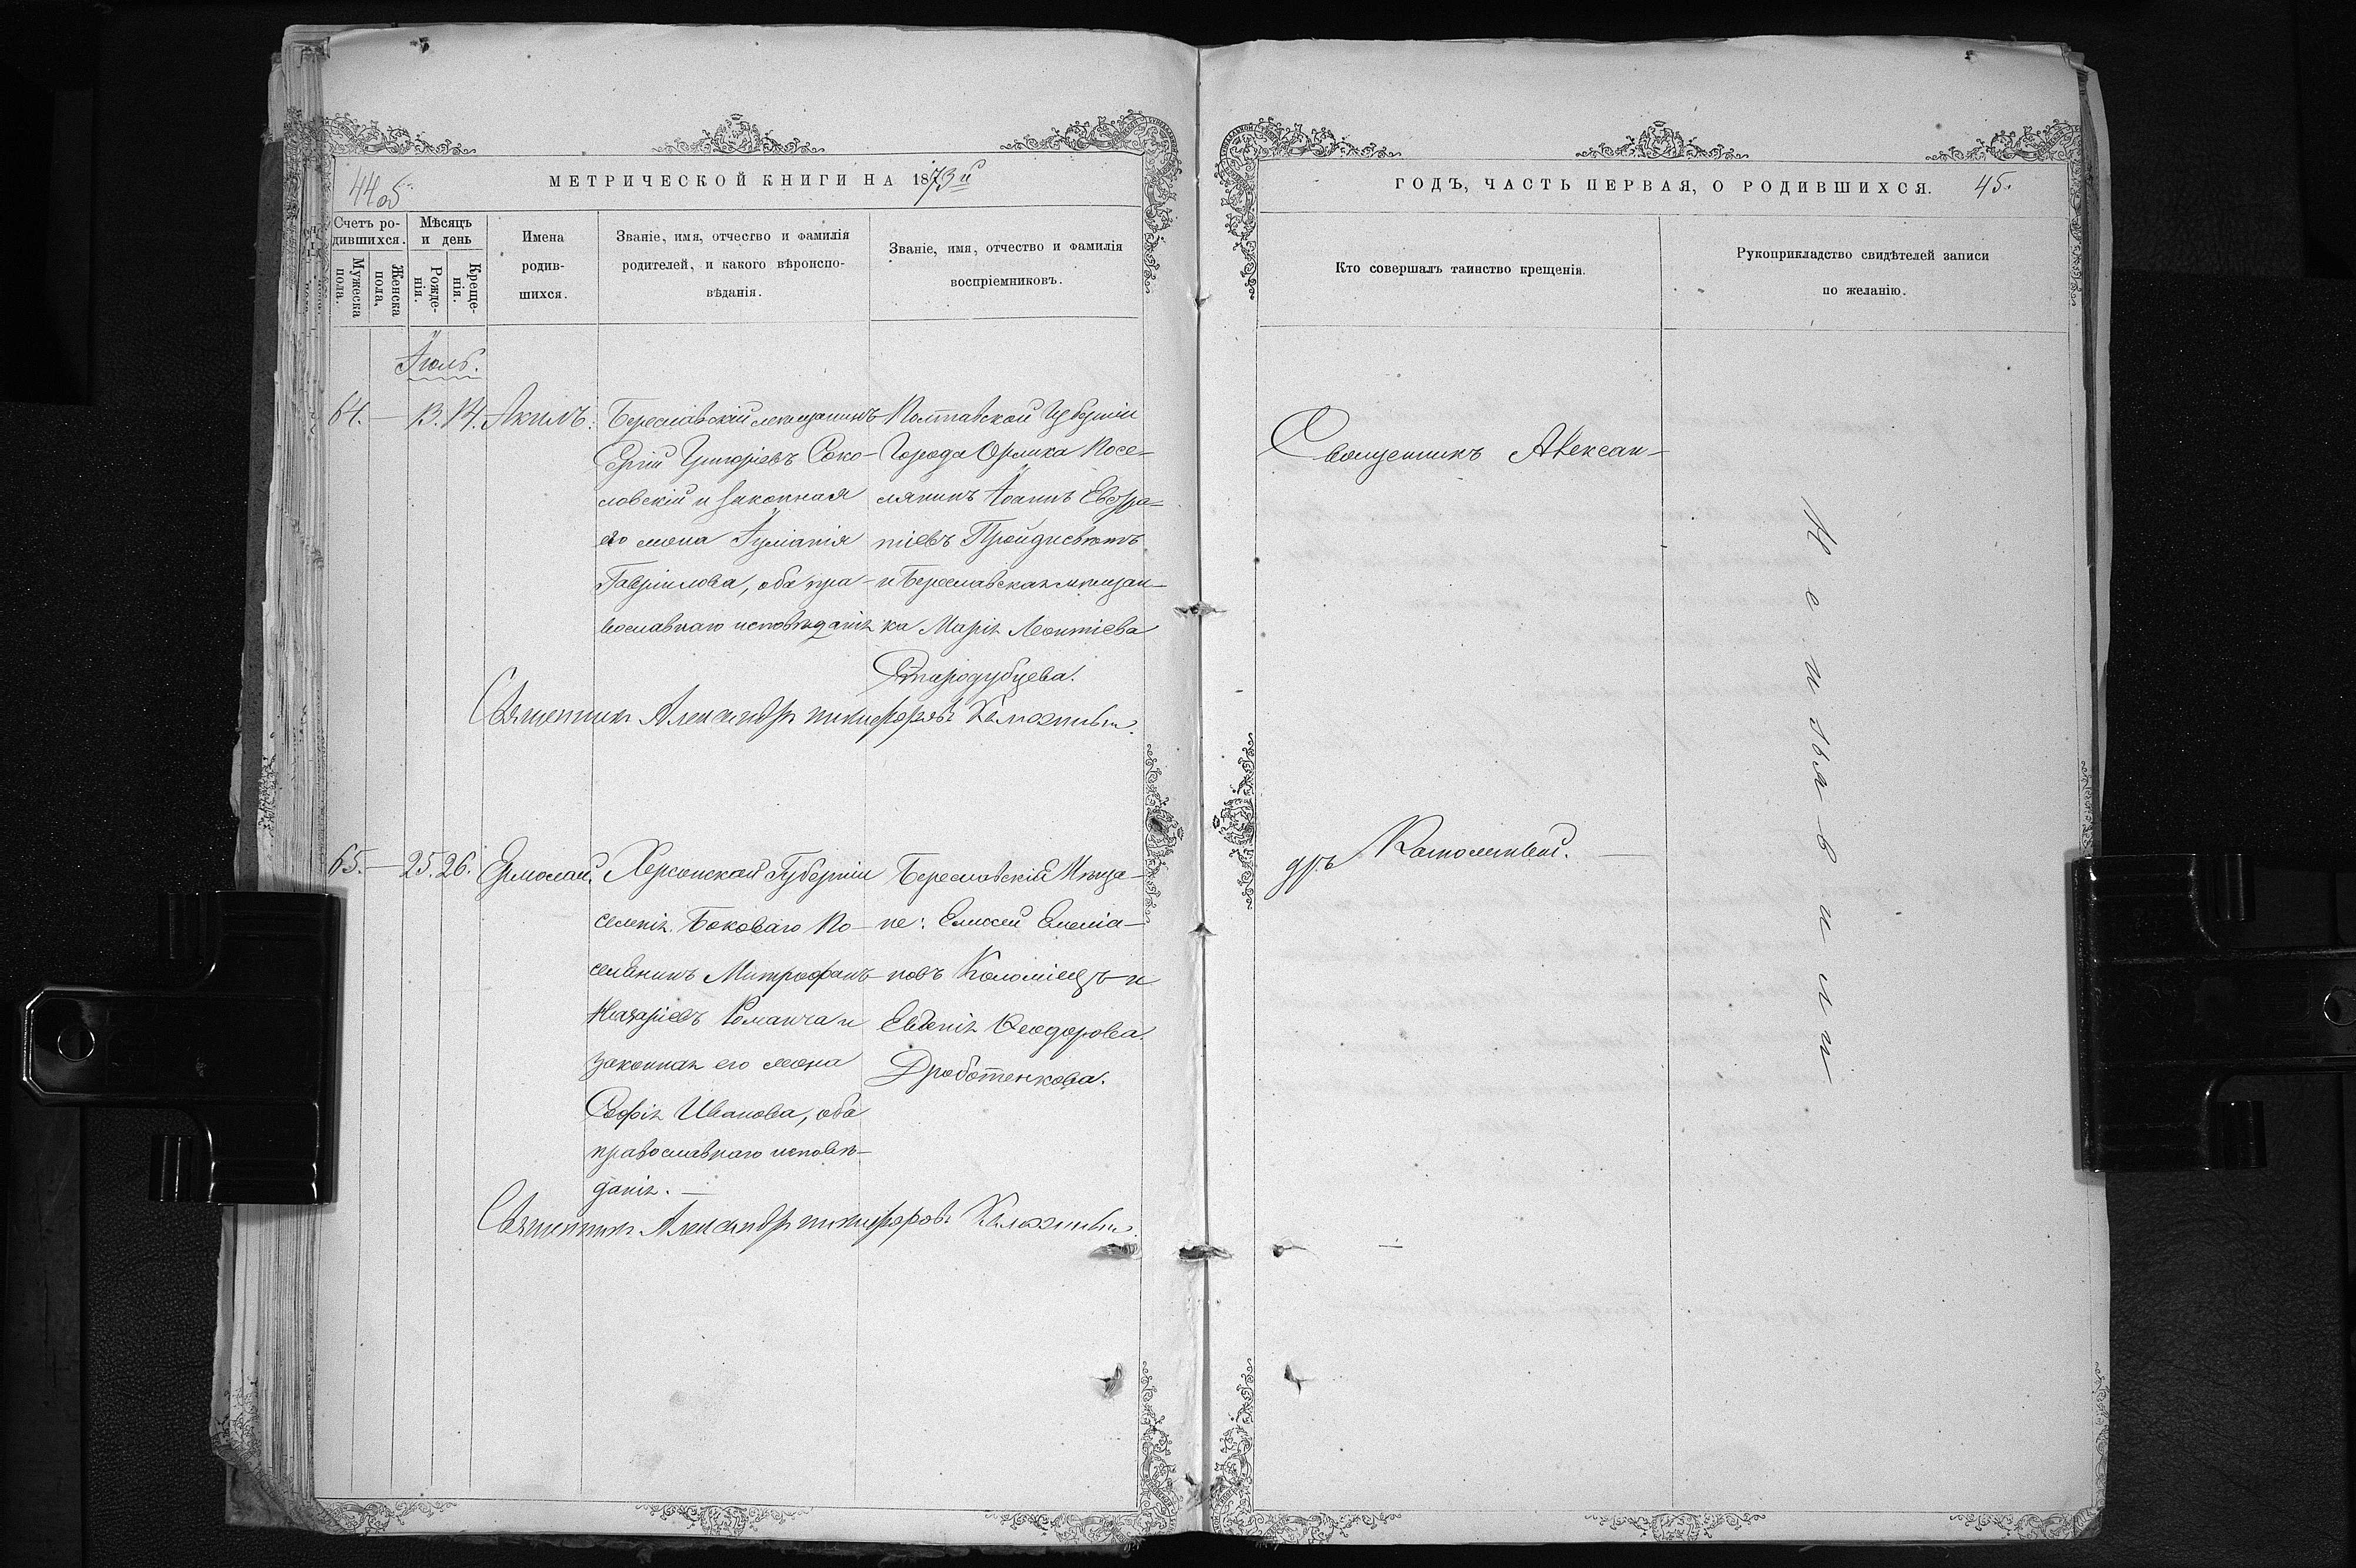 44 об
МЕТРИЧЕСКОЙ КНИГИ НА 1873й
Счетъ родившихся.
Мужеска пола.
Женска пола.
Мѣсяцъ и день
Рожденія.
Крещенія.
Имена родившихся.
Званіе, имя, отчество и фамилія
родителей, и какого вѣроиспо-
вѣданія.
Званіе, имя, отчество и фамилія
воспріемниковъ.
Іюль.
64. — 13. 14. Акилъ.
Бериславскій мѣщанинъ
Сергій Григоріевъ Соко-
ловскій и законная
его жена Іуліанія
Гавріилова, оба пра-
вославнаго исповѣданія
Полтавской Губерніи
Города Орлика Посе-
лянинъ Іоаннъ Евстра-
тіевъ Пройдисвѣтъ
и Бериславская мѣщан-
ка Марія Леонтіева
Стародубцева.
Священникъ Александръ Никифоровъ
65. — 25. 26. Ермолай.
Херсонской Губерніи
селенія Боковаго По-
селянинъ Митрофанъ
Назаріевъ Романча и
законная его жена
Софія Иванова, оба
православнаго исповѣ-
данія. —
Бериславскій Мѣща-
не: Елисей Емелія-
новъ Коломіецъ и
Евгенія Ѳеодорова
Дроботенкова.
Священникъ Александръ Никифоровъ
ГОДЪ, ЧАСТЬ ПЕРВАЯ, О РОДИВШИХСЯ.
45.
Кто совершалъ таинство крещенія.
Рукоприкладство свидѣтелей записи
по желанію.
Священникъ Алексан-
дръ
Не изъявили